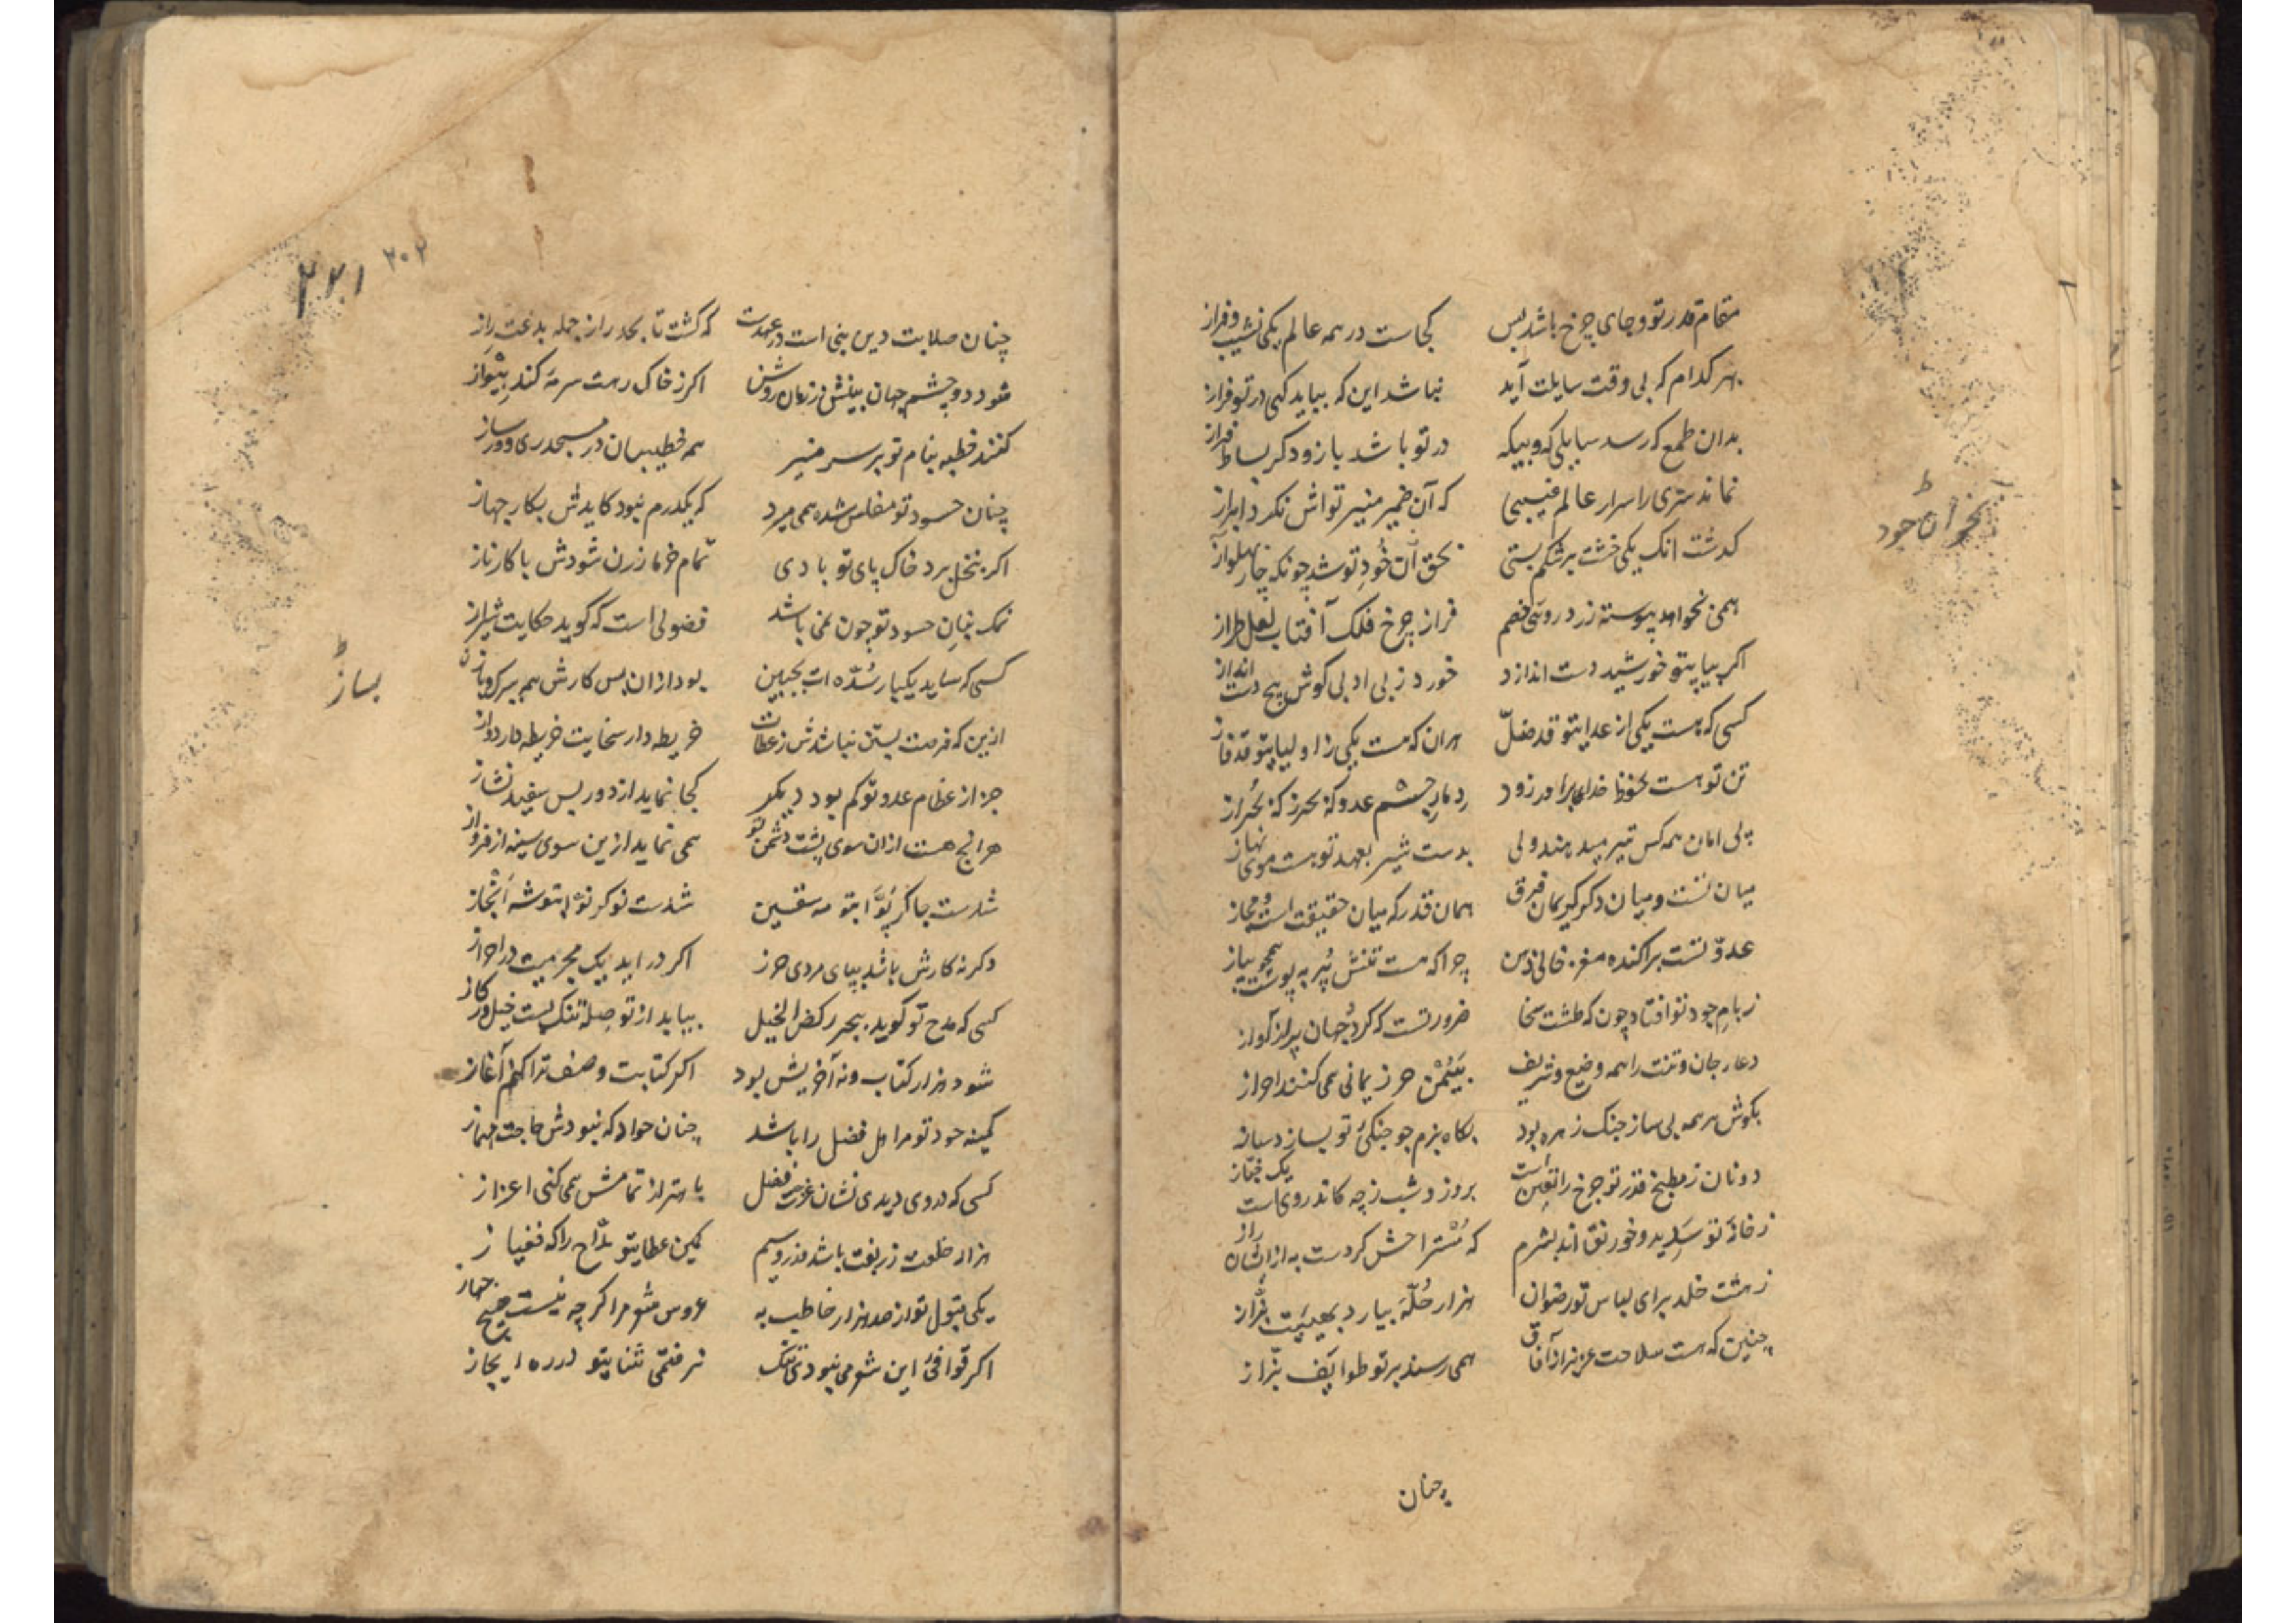 مقام قدر تو و جای چرخ باشد پس کجاست در همه عالم یکی نشیب و فراز
بهر کدام که بی وقت سایلت آید نباشد این که بیاید کهی در تو فراز
بدان طمع که رسد سایلی که و بیکه در تو باشد باز و دکر بساط فراز
نماند ستری را سرار عالم غیبی که آن ضمیر منیر تواش نکرد ابراز
کدشت انک یکی خشت بر شکم بستی بحق آن خود تو شد چونکه چار پهلو آز
بخوان جود
همی نخواهد پیوسته زرد روی خصم فراز چرخ فلک آفتاب لعل طراز
اکر بیاپیتو خورشید دست اندازد خورد ز بی ادبی کوش پیچ دست انداز
کسی که هست یکی از عدایتو قد ضلّ هران که هست یکی ز اولیاپیتو قد فاز
تن تو هست بحفظ خدای برادر زود چشم عدو که
پی امان همه کس تیر میدهند ولی بدست شیر بعهد تو هست موی نهاز
میان تست و میان دکر کریمان فرق همان قدر که میان حقیقت است و مجاز
عدوّ تست پراکنده مغز خالی ذهن چرا که هست تنش پر به پوست همچو پیاز
ز بام جود تو افتاد چون که طشت سخا ضرورتست که کرد جهان پر از آواز
دعا جان و تنت را همه وضیع و شریف بیمن حرز یمانی همی کنند احراز
بکوش سر همه بی ساز جنک زهره بود بکاه بزم چو جنکی تو بساز
دو نان ز مطبخ قدر تو چرخ را تعیین است بروز و شب ز چه کاندر وی است یک خبّاز
ز خانهٔ تو سدید و خورنق اند بشرم که مستراحش کردست به از ایشان راز
ز هشت خلد برای لباس تو رضوان هزار حلّه بیارد بعیبت بزّاز
چنین که هست سلاحت عزیز از آفاق همی رسند بر تو طوایف بزّاز
چنان
۲۷۱ ۲۰۲
چنان صلابت دین بنی است در عهدت که کشت تا بحد راز جمله بدعت راز
شود دو چشم جهان بینش زمان روشن اکر ز خاک رهت سرمه کند
کنند خطبه بنام تو بر سر منبر همه خطیبان در مسجد ری و ورساز
چنان حسود تو مفلس شده همی میرد که یکدرم نبود کایدش بکار جهاز
اکر بنخل برد خاک پای تو بادی تمام خرما زرن شودش با کارناز
نمک بنان حسود تو چون نمی باشد فضولی است که کوید حکایت شیراز
کسی که ساید یکبار سدّه ات بجبین بود از ان پس کارش همه
بساز
ازین که فرصت بستن نباشدش ز عطات خریطه دار سخایت خریطه دارد واز
جز از عظام عدو تو کم بود دیکر کجا نماید از دور پس سفید نشاز
هرانچ هست ازان سوی پشت دشمن تو همی نماید ازین سوی سینه از فرواز
شدست چاکر شدست نوکر
دکر نه کارش باشد بپای مردی حرز اکر دراید یک مجرمیت در احواز
کسی که مدح تو کوید ببحر رکض الخیل بیابد از تو صله تنک بست خیل ور کاز
شود هزار کتاب و نه آخریش بود اکر کتابت وصف ترا کنم آغاز
کمینه جود تو مر اهل فضل را باشد چنان جواد که نبودش حاجت
کسی که در وی دیدی نشان غرت فضل با همزار تمامش همی کنی اعزاز
هزار خلعت زربفت باشد و زر و سیم کمین عطایتو مدّاح را که فغیاز
یکی قبول تو از صد هزار خاطب به عروس شعر مرا کرچه نیست هیچ جهاز
اکر قوافی این شعر می نبودی تنک نرفتمی ثنایتو در ره ایجاز